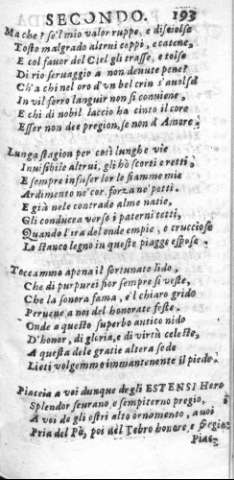 SECONDO. 193
Ma che? se'l mio valor ruppe, e disciolse
Tosto malgrado altrui ceppi, e catene,
E col fauor del Ciel gli trasse, e tolse
Di rio seruaggio a non denute pene?
Ch'a chi nel oro d'un bel crin s'auolse
In vil ferro languir non si conuiene,
E chi di nobil laccio ha cinto il core
Esser non dee pregion, se non d'Amore.
Lunga stagion per ceche lunghe vie
Inuisibile altrui, gli hò scorti e retti,
E sempre infuser lor le fiamme mie
Ardimento ne' cor, forza ne' petti.
E già nele contrade alme natie,
Gli conducea verso i paterni tetti,
Quando l'ira del onde empie, e cruccioso
Lo stanco legno in queste piagge espose.
Toccammo apena il fortunato lido,
Che di purpurei fior sempre si veste,
Che la sonora fama, e'l chiaro grido
Peruene a noi del honorate feste.
Onde a questo superbo antico nido
D'honor, di gloria, e di virtù celeste,
A questa dele gratie altera sede
Lieti volgemmo immantenente il piede.
Piaccia a voi dunque degli ESTENSI Heroi
Splendor sourano, e sempiterno pregio,
A voi de gli ostri alto ornamento, a voi
Pria del Pò, poi del Tebro honore, e fregio
Piac-